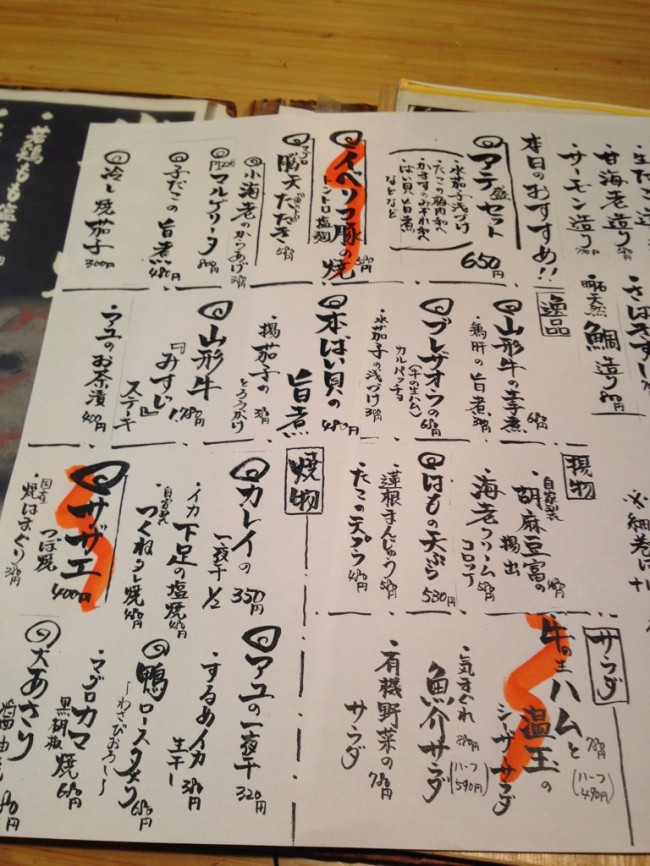 生だこ造り
甘海老造り
サーモン造り
本日のおすすめ!!
アテ盛セット
・水茄子浅づけ
・たこの梅肉和へ
・ばい貝旨煮
などなど
650円
イベリコ豚の
トントロ塩麹
焼
小海老のからあげ
マルゲリータ
子だこの旨煮
480円
冷し焼茄子
300円
鯛造り
逸品
山形牛の生子煮
・鶏肝の旨煮
ブレザオラの
(牛の生ハム)
カルパッチョ
・水茄子の浅づけ
本ばい貝の
旨煮
480円
・揚茄子の
とろろかけ
山形牛
『みすじ!』
ステーキ
・アユのお茶漬
400円
揚物
自家製
胡麻豆富の
揚出
海老クリーム
コロッケ
はもの天ぷら
530円
・蓮根まんじゅう
・たこの天プラ
焼物
カレイの
一夜干
1/2
350円
・イカ下足の塩焼
自家製
つくねタレ焼
サザエ
つぼ焼
400円
国産
焼はまぐり
サラダ
牛の生ハムと
温玉の
シーザーサラダ
780円
(ハーフ490円)
・気まぐれ
魚介サラダ
(ハーフ590円)
・有機野菜の
サラダ
780円
アユの一夜干
320円
・するめイカ
生干し
380円
鴨ロースタタキ
〜わさびおろし〜
・マグロカマ
黒胡椒
焼
680円
大あさり
・若鶏もも塩焼